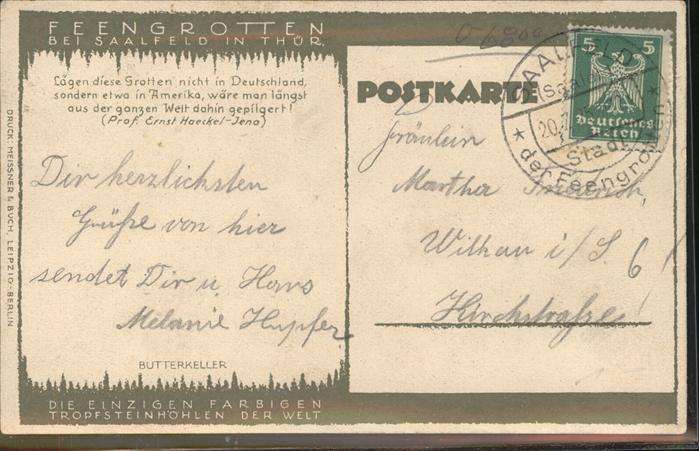 FEENGROTTEN
BEI SAALFELD IN THÜR.
Lägen diese Grotten nicht in Deutschland,
sondern etwa in Amerika, wäre man längst
aus der ganzen Welt dahin gepilgert!
(Prof. Ernst Haeckel-Jena)
Dir herzlichsten
Grüße von hier
sendet Dir u. Hans
Melanie Hupfer
BUTTERKELLER
DIE EINZIGEN FARBIGEN
TROPFSTEINHÖHLEN DER WELT
DRUCK: MEISSNER & BUCH, LEIPZIG-BERLIN
POSTKARTE
5 5
Deutsches
Reich
SAALFELD
(Saale)
20.
Stadt
der Feengrotten
Fräulein
Martha
Wilkau i/S.
Kirchstraße 6!